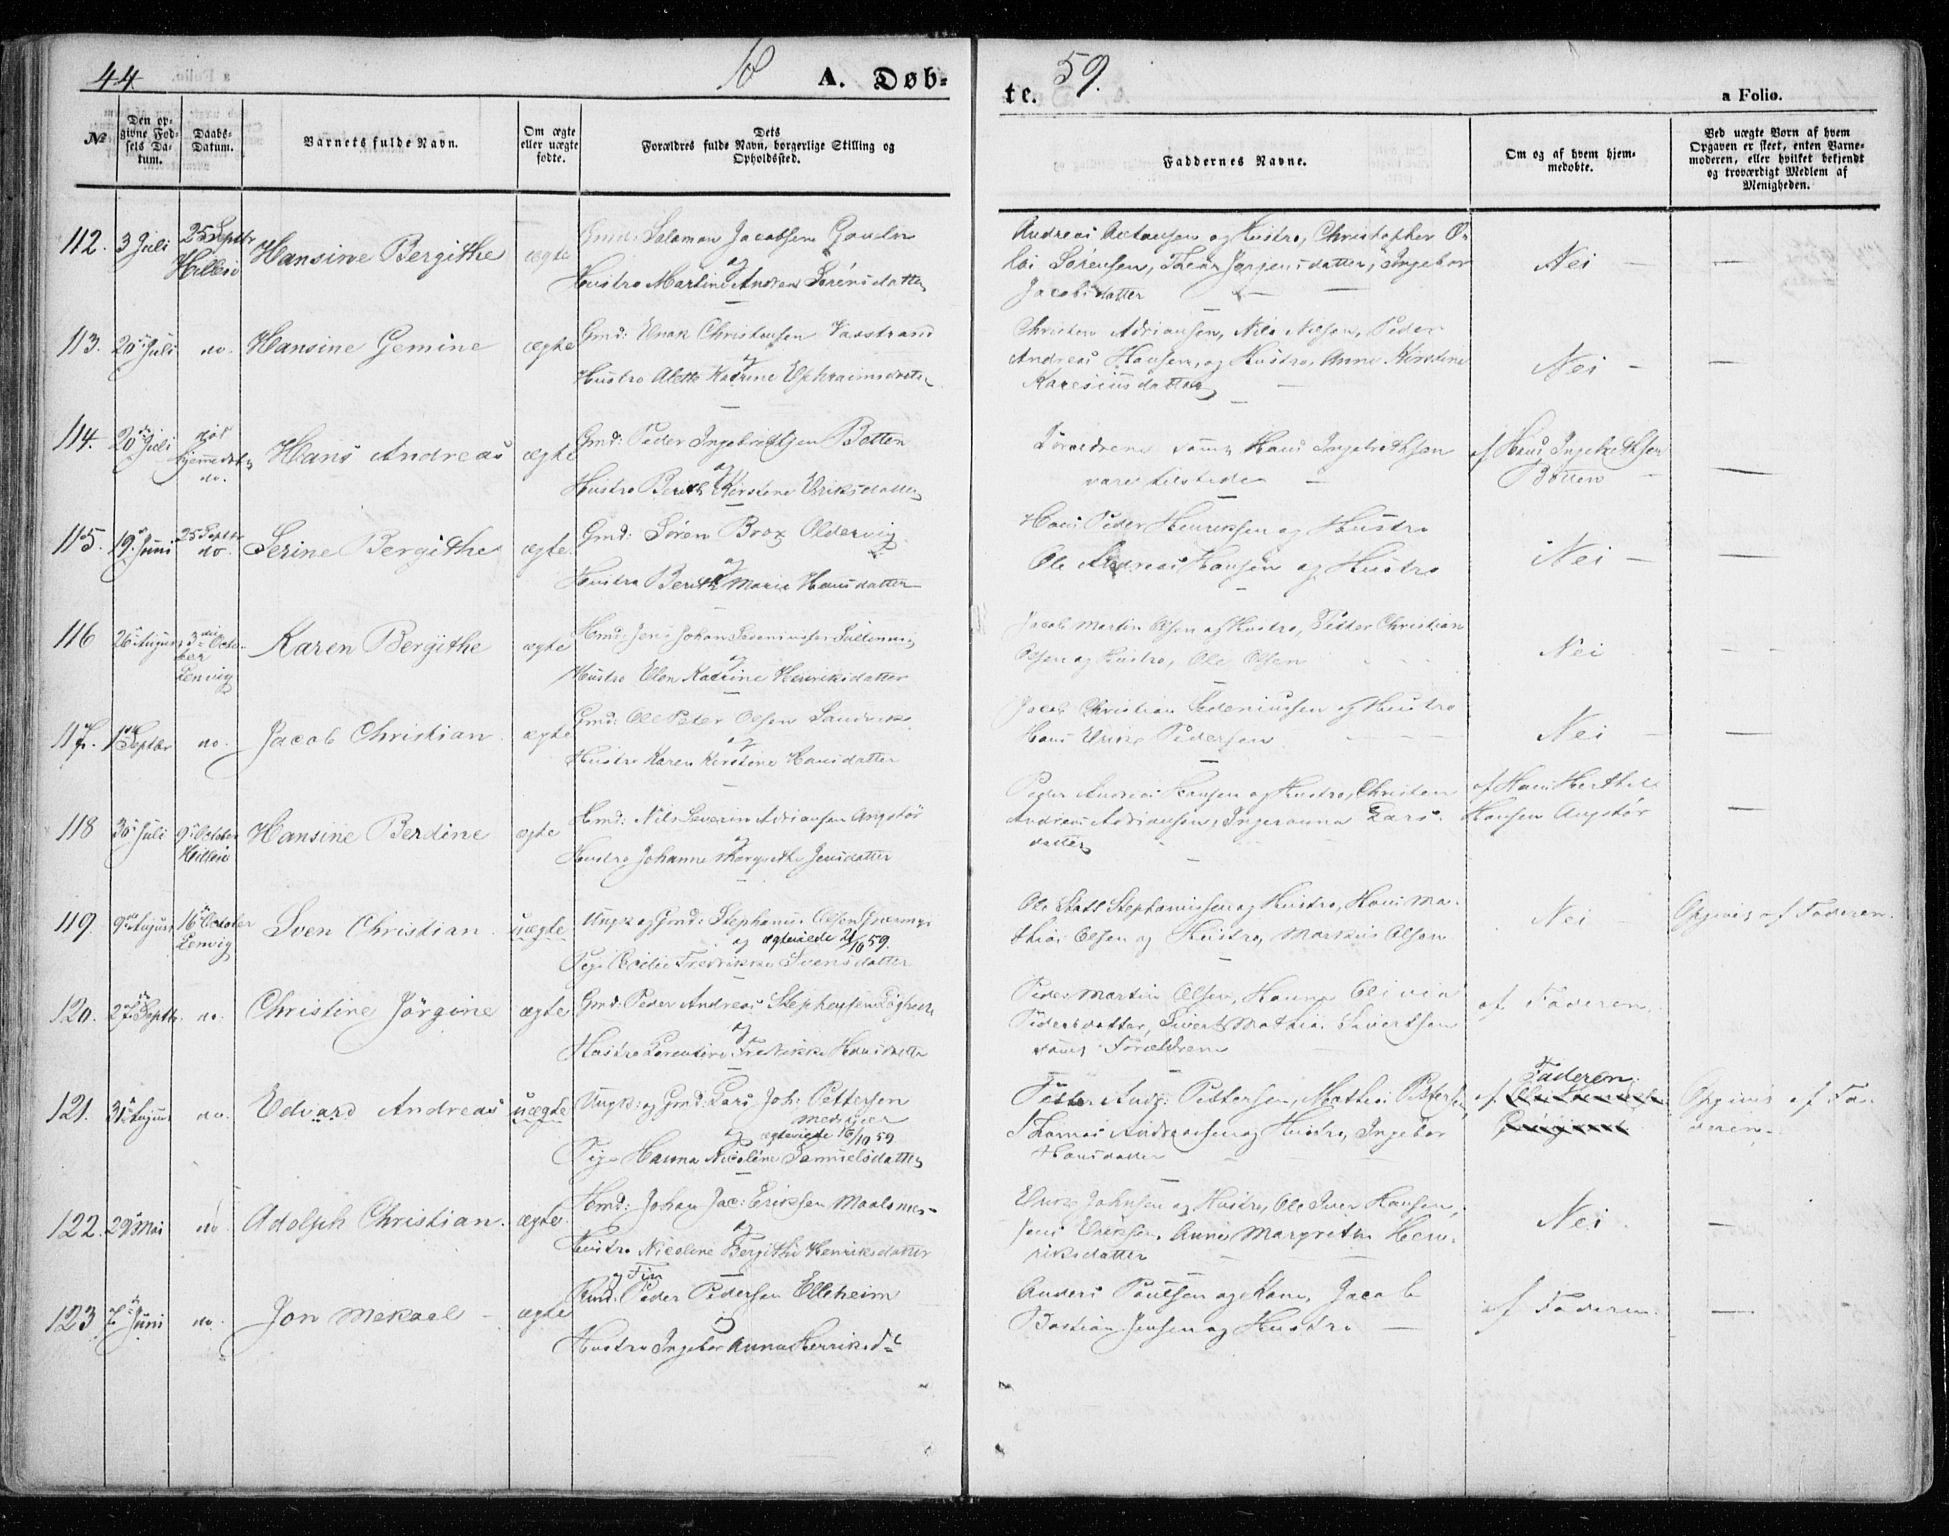 44
18
A. Døb-
59.
te.
a Folio.
№
Den op-
givne Fød-
sels Da-
tum.
Daabs-
Datum.
Barnets fulde Navn.
Om ægte
eller uægte
fødte.
Dets
Forældres fulde Navn, borgerlige Stilling og
Opholdssted.
Faddernes Navne.
Om og af hvem hjem-
medøbte.
Ved uægte Børn af hvem
Opgaven er skeet, enten Barne-
moderen, eller hvilket bekjendt
og troværdigt Medlem af
Menigheden.
112. 3 Juli 25 Septbr Hillesø Hansine Bergithe ægte
Gmd: Salamon Jacobsen
og
Hustro Martine Andrea Sørensdatter
og Hustro, Christopher O-
Sørensen, Jørgensdatter, Ingebor
Jacobsdatter
Nei —
113. 20 Juli do. Hansine Gemine ægte
Gmd: Elvak Christensen Vasstrand
og
Hustro Alette Katrine Ephraimsdatter
Christen Adriansen, Nils Nilsen, Peder
Andreas Hansen og Hustro, Anne Kirstine
Nei —
114. 20 Juli hjemmedøbt do. Hans Andreas ægte
Gmd: Peder Ingebrigtsen Botten
og
Hustro Berith Kirstine Eriksdatter
Forældrene samt Hans Ingebrethsen
vare tilstede —
af Hans Ingebrethsen
Botten —
115. 19 Juni 25 Septbr do. Serine Bergithe ægte.
Gmd: Søren Brox Oldervig
og
Hustro Berith Maria Hansdatter
Hans Peder Henriksen og Hustro
Ole Andreas Hansen og Hustro
Nei —
116 26 August 3die October Lenvig Karen Bergithe ægte
Hmd: Jens Johan Severinsen
og
Hustro Elen Katrine Henriksdatter
Jacob Martin Olsen og Hustro, Petter Christian
Olsen og Hustro, Ole Olsen
Nei
117. 1 Septbr do. Jacob Christian. ægte
Gmd: Ole Peter Olsen Sandvik
og
Hustro Karen Kirstine Hansdatter
Jacob Christian Pedersen og Hustro
Hans Erik Pedersen
Nei —
118 30 Juli 9 October Hillesø Hansine Berdine ægte
Hmd: Nils Severin Adriansen Angstør
og
Hustro Johanne Margrethe Jensdatter
Peder Andreas Hansen og Hustro, Christen
Andreas Adriansen, Ingeranna Lars-
datter
af Hans Berthel
Hansen Angstør
119. 9 August 16 October Lenvig Sven Christian. uægte
Ungk og Gmd: Stephanus Olsen
og ægteviede 21/10 59.
Pige Fredrikke Svensdatter
Ole Stephanussen og Hustro, Hans Ma-
thias Olsen og Hustro, Markus Olsen
Nei
Opgivet af Faderen.
120. 27 Septbr. do. Christine Jørgine ægte
Gmd: Peder Andreas Stephansen
og
Hustro Lorentine Fredrikke Hansdatter
Peder Martin Olsen, Hanna Olivia
Pedersdatter, Sivert Mathis Sivertsen
samt Forældrene
af Faderen.
121. 31 August do. Edvard Andreas uægte
Ungk: og Gmd: Lars Joh: Pettersen
og ægteviede 16/10 59
Pige Hanna Nicoline Samuelsdatter
Petter Andr: Pettersen, Mathis Pettersen
Thomas Andreassen og Hustro, Ingebor
Hansdatter
af Faderen.
Opgivet af Fa-
deren.
122. 29 Mai do Adolph Christian. ægte.
Hmd: Johan Jac: Eriksen Maalsnes
og
Hustro Nicoline Bergithe Henriksdatter
Erik Johnsen og Hustro, Ole Iver Hansen,
Jens Eriksen, Anne Margrethe Hen-
riksdatter
Nei.
123 7 Juni do. Jon Mekael ægte
og Fin
Rmd: Peder Pedersen Elleheim
og
Hustro Ingebor Anna Henriksd.
Anders Poulsen og Kone, Jacob
Bastian Jensen og Hustro —
af Faderen.